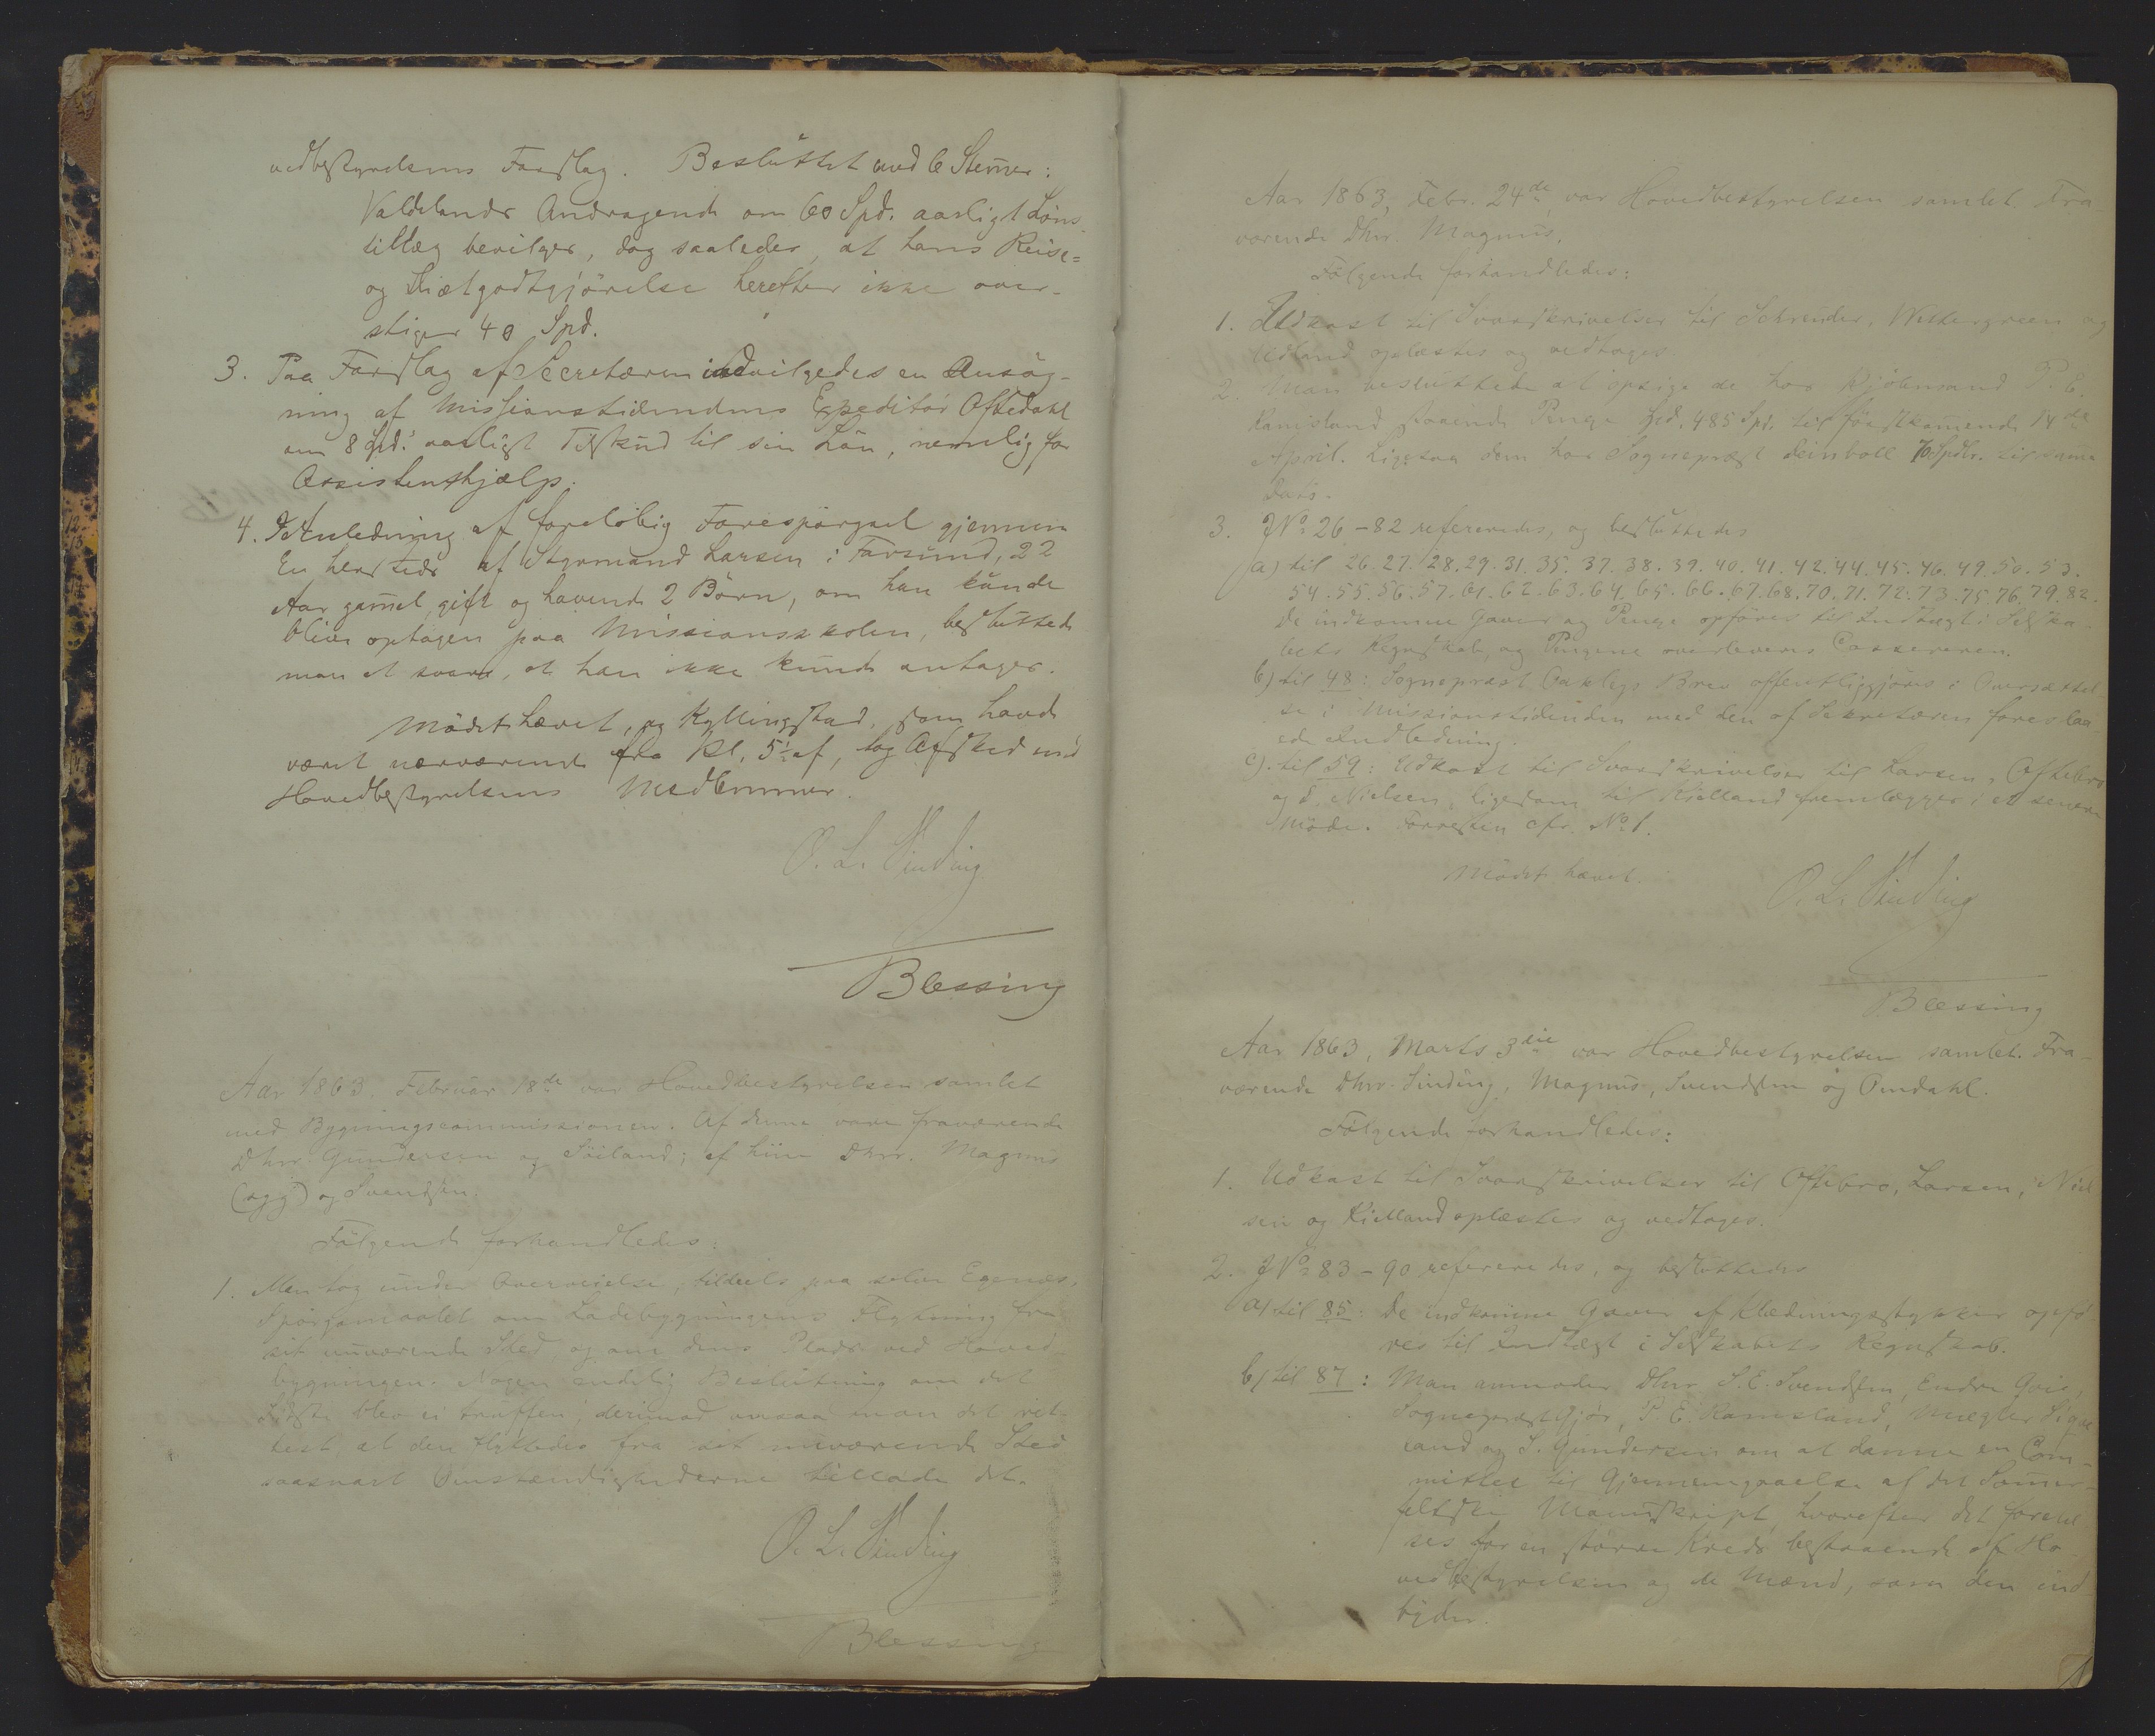 vedbestyrelsens Forslag. Besluttet med 6 Stemer:
Valdelands Andragende om 60 Spd. aarligt Løns-
tillæg bevilges, dog saaledes, at hans Reise=
og Diætgodtgjörelse herefter ikke over-
stiger 40 Spd.
3. Paa Forslag af Secretæren indvilgedes en Ansøg-
ning af Missionstidendens Expeditör Oftedahl
om 8 Spd. aarligt Tilskud til sin Lön, nemlig for
Assistenthjælp.
4. I Anledning af foreløbig Forespørgsel gjennem
En hersteds af Styrmand Larsen i Farsund, 22
Aar gamel, gift og havende 2 Börn, om han kunde
blive optagen paa Missionsskolen, besluttede
man at svare, at han ikke kunde antages.
Mödet hævet, og Kyllingstad, som havde
været nærværende fra Kl. 5 1/2 af, tog Afsked med
Hovedbestyrelsens Medlemmer.
O. L. Sinding
Blessing
Aar 1863. Februar 18de var Hovedbestyrelsen samlet
med Bygningscommissionen. Af denne vare fraværende
Dhrr Gundersen og Söiland; af hiin Dhrr. Magnus
(syg) og Svendsen.
Fölgende forhandledes:
1. Man tog under Overveielse, tildeels paa selve Egenæs,
Spörgsmaalet om Ladebygningens Flytning fra
sit nuværende Sted, og om dens Plads ved Hoved-
bygningen. Nogen endelig Beslutning om det
sidste blev ei truffen; derimod ansaa man det ret-
test, at den flyttedes fra sit nuværende Sted
saasnart Omstændighederne tillade det.
O. L. Sinding
Blessing
Aar 1863, Febr. 24de var Hovedbestyrelsen samlet. Fra-
værende Dhrr. Magnus,
Fölgende forhandledes:
1. Udkast til Svarskrivelser til Schreuder, Wettergreen og
Udland oplæstes og vedtoges.
2. Man besluttede at opsige de hos Kjöbmand P. E.
Ramsland staaende Penge Spd. 485 Spd. til förstkomende 14de
April. Ligesaa dem hos Sognepræst Deinboll 70 Spdlr. til same
Dato.
3. J No 26-82 refereredes, og besluttedes
a) til 26. 27. 28. 29. 31. 35. 37. 38. 39. 40. 41. 42. 44. 45. 46. 49. 50. 53.
54. 55. 56. 57. 61. 62. 63. 64. 65. 66. 67. 68. 70. 71. 72. 73. 75. 76. 79. 82.
De indkomne Gaver og Penge opföres til Indtægt i Selska-
bets Regnskab, og Pengene overleveres Cassereren.
b) til 48: Sognepræst Oxelsos Brev offentliggjöres i Oversættel-
se i Missionstidenden med den af Sekretæren foreslaa-
ede Indledning.
c) til 59: Udkast til Svarskrivelser til Larsen, Oftebro
og T. Nielsen, ligesom til Kielland fremlægges i et senere
Möde. Forresten cfr. No 1.
Mödet hævet.
O. L. Sinding
Blessing
Aar 1863, Marts 3die var Hovedbestyrelsen samlet. Fra-
værende Dhrr. Sinding, Magnus, Svendsen og Omdahl.
Fölgende forhandledes:
1. Udkast til Svarskrivelser til Oftebro, Larsen, Niel
sen og Kielland oplæstes og vedtoges.
2. J No 83-90 refereredes, og besluttedes
a) til 85: De indkomne Gaver af Klædningsstykker opfö-
res til Indtægt i Selskabets Regnskab.
b) til 87: Man anmoder Dhrr S. E. Svendsen, Endre
Sognepræst Gjör, P. E. Ramsland, Mægler Sigve
land og S. Gundersen om at danne en Com-
mittee til Gjennemgaaelse af det Somer-
feltske Manuskript, hvorefter det forelæ
ses for en större Kreds bestaaende af Ho
vedbestyrelsen og de Mænd, som den ind
byder.